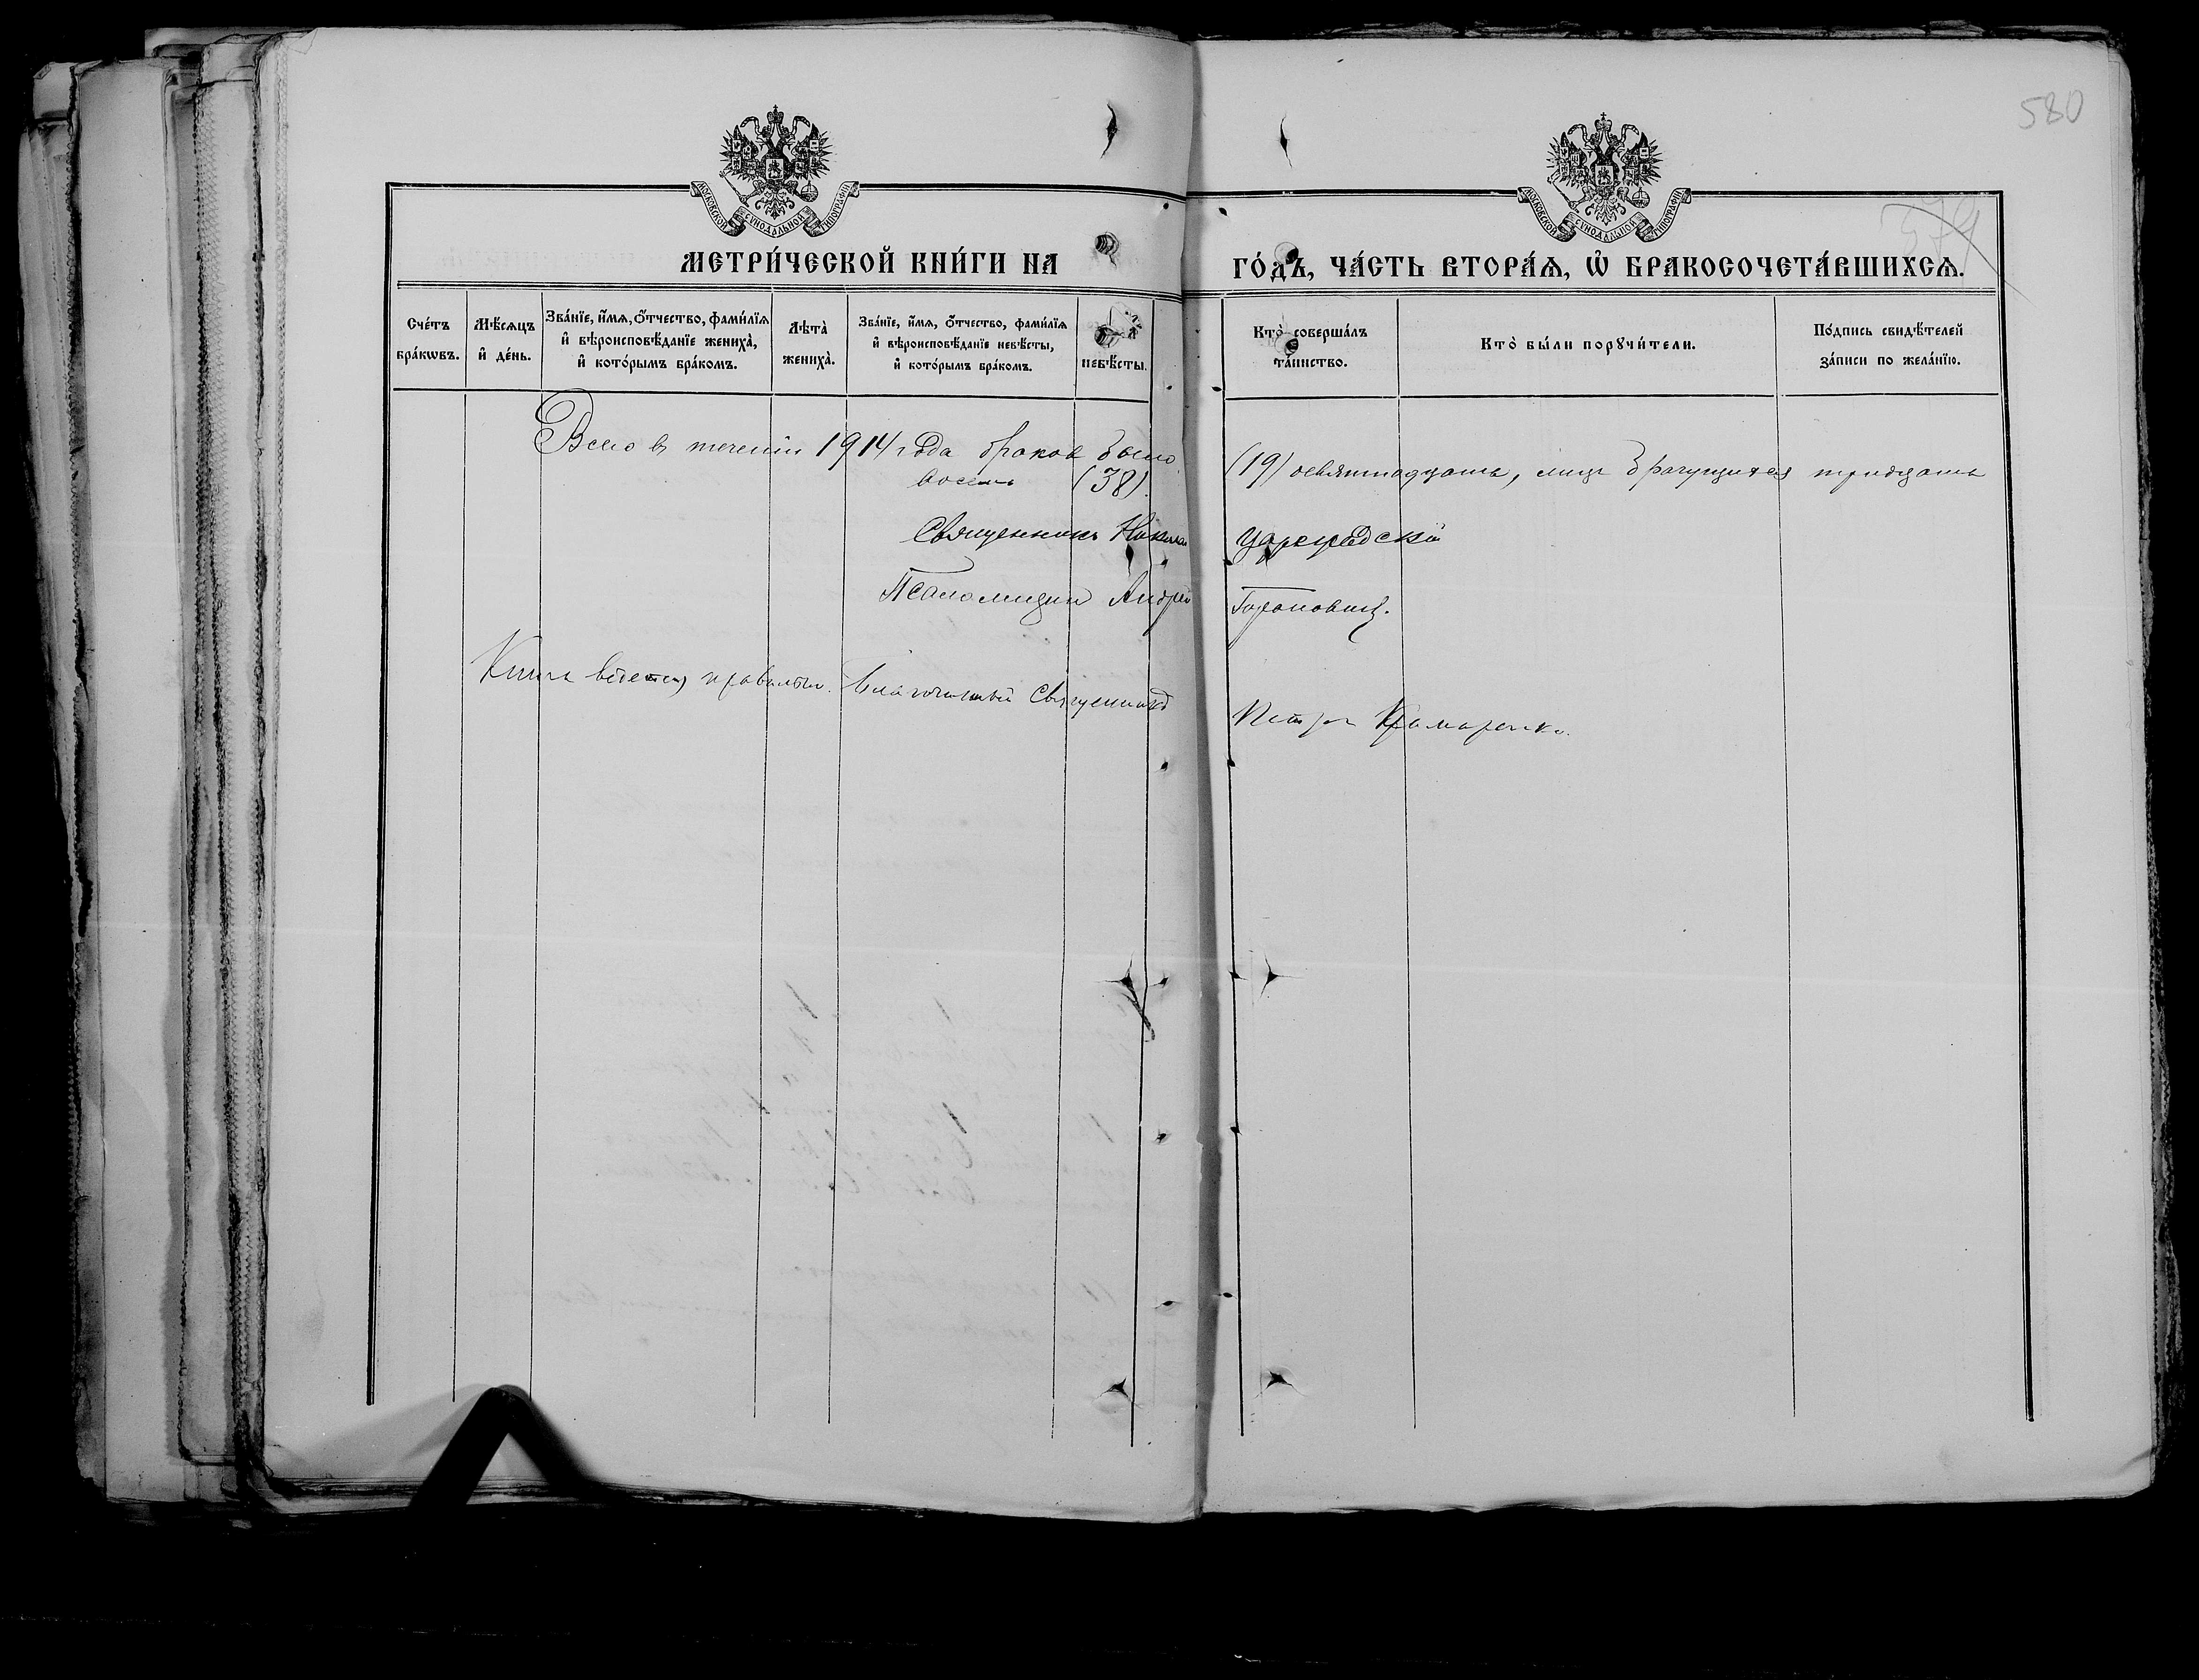 580
579
МОСКОВСКОЙ СѴНОДАЛЬНОЙ ТИПОГРАФІИ
МОСКОВСКОЙ СѴНОДАЛЬНОЙ ТИПОГРАФІИ
МЕТРИ́ЧЕСКОЙ КНИ́ГИ НА ГО́ДЪ, ЧА́СТЬ ВТОРА́Ѧ, Ѽ БРАКОСОЧЕТА́ВШИХСѦ.
Сче́тъ бра́кѡвъ.
Мѣ́сѧцъ и҆ де́нь.
Зва́нїе, и҆́мѧ, ѻ҆́тчество, фами́лїѧ и҆ вѣроисповѣ́данїе жениха̀, и҆ кото́рымъ бра́комъ.
Лѣта̀ жениха̀.
Зва́нїе, и҆́мѧ, ѻ҆́тчество, фами́лїѧ и҆ вѣроисповѣ́данїе невѣ́сты, и҆ кото́рымъ бра́комъ.
невѣ́сты.
Кто̀ соверша́лъ та́инство.
Кто̀ бы́ли порꙋчи́тели.
По́дпись свидѣ́телей за́писи по жела́нїю.
Всего въ теченіи 1914 года браков было (19) девятнадцать, лицъ брачущихся тридцать
восемь (38).
Священникъ Николай Цареградскій
Псаломщик Андрей
Книга ведется правильно. Благочинный Священникъ Петръ Крамаренко.